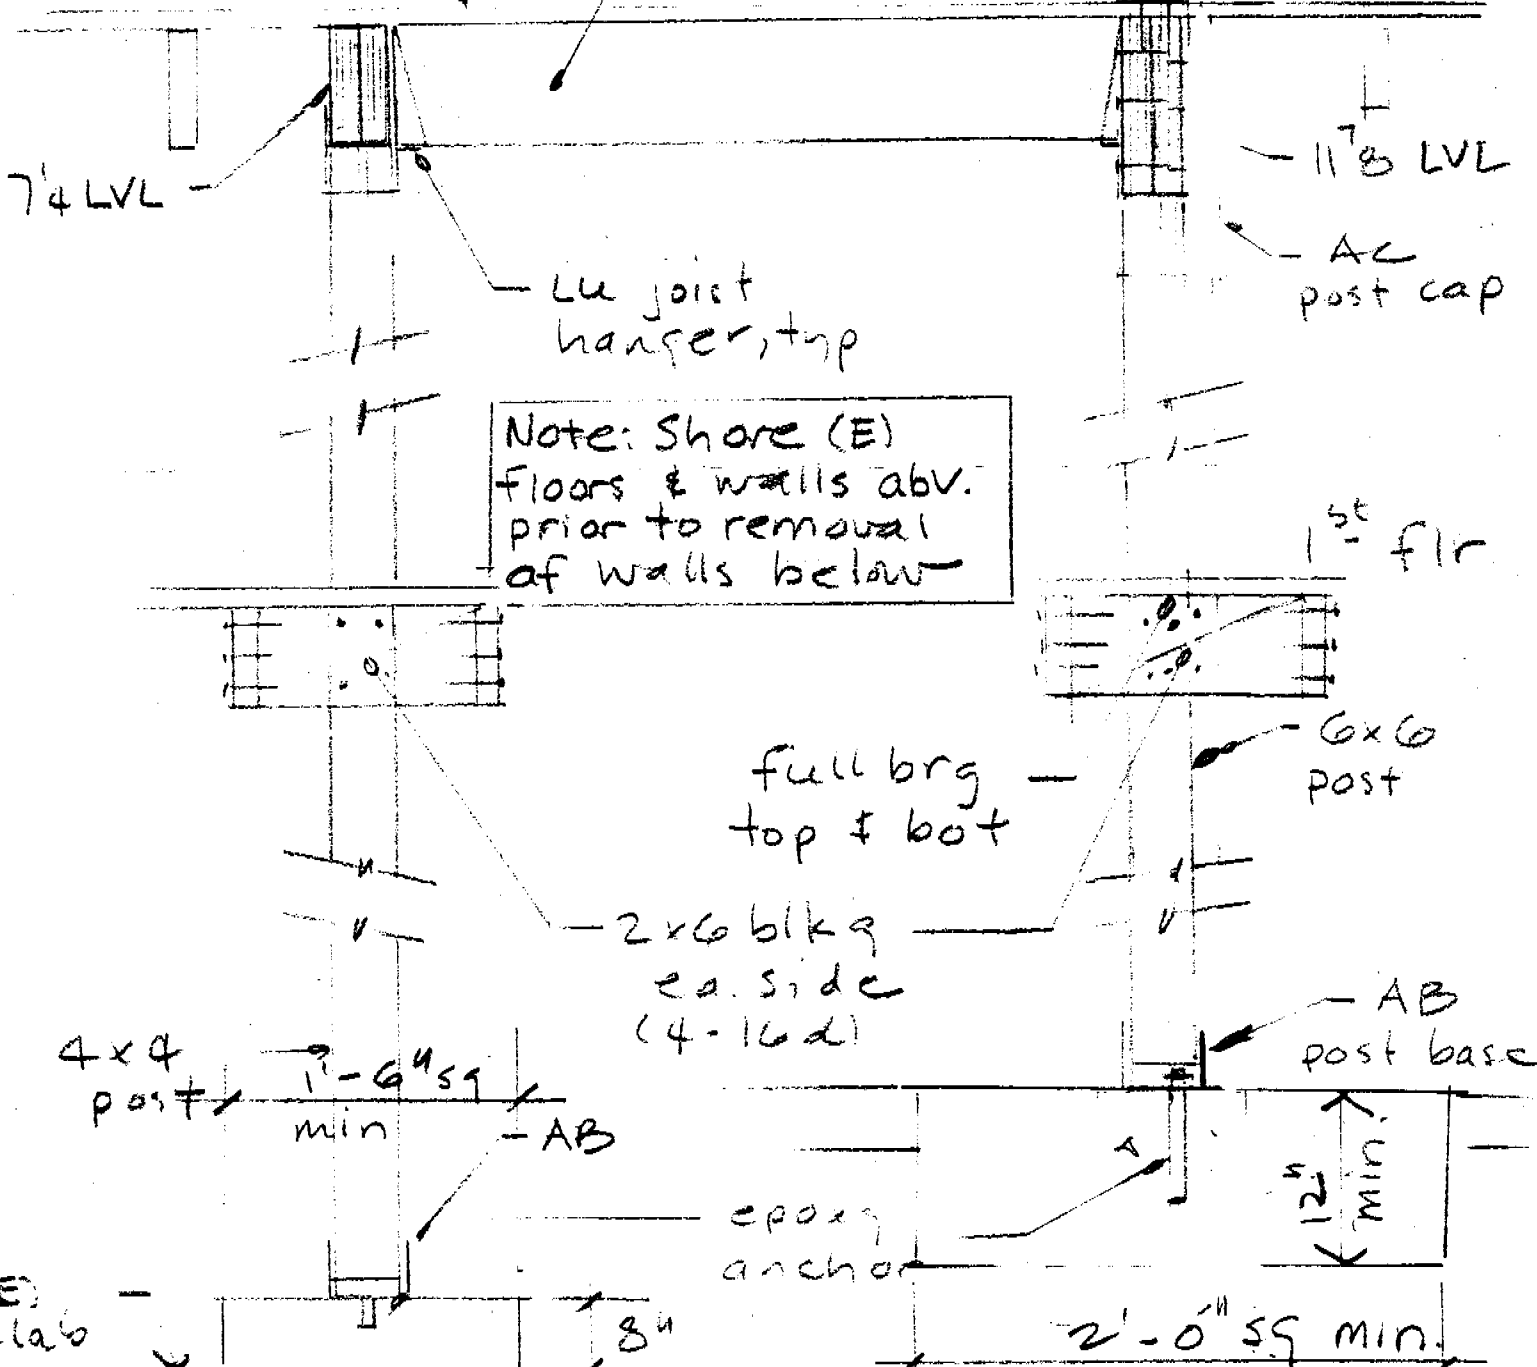 7'4 LVL
11 7/8 LVL
AC
post cap
LU joist
hanger, typ
Note: Shore (E)
floors & walls abv.
prior to removal
of walls below
1st flr
6x6
post
full brg
top & bot
2x6 blkg
ea. side
(4-16d)
AB
post base
4x4
post
1'-6" sq
min
AB
epoxy
anchor
12"
min.
(E)
slab
8"
2'-0" sq min.